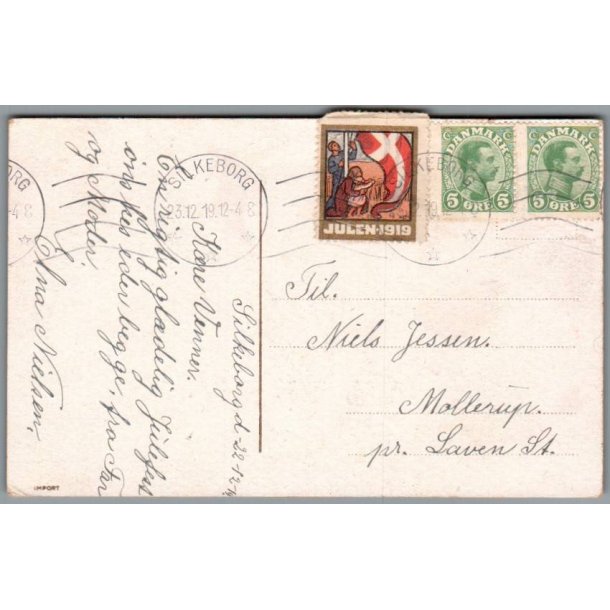 Silkeborg d. 22-12-19
Kære Venner.
En rigtig glædelig Julefest
ønskes eder begge, fra Far
og Moder.
Ana Nielsen.
SILKEBORG
23.12.19.12-4 8
JULEN·1919
KEBORG
DANMARK
5 ØRE 5
DANMARK
5 ØRE 5
ORG
-4 8
Til.
Niels Jessen.
Mollerup.
pr. Laven St.
IMPORT